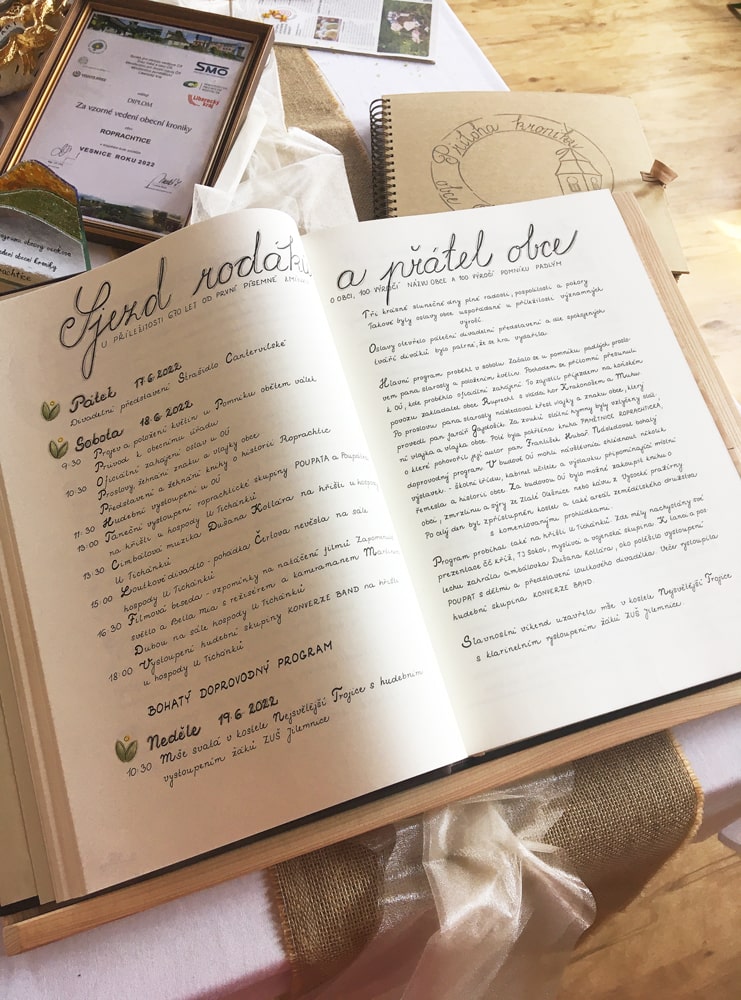 SMO
Liberecký kraj
DIPLOM
Za vzorné vedení obecní kroniky
ROPRACHTICE
VESNICE ROKU 2022
vedení obecní kroniky
Příloha kroniky
obce
Sjezd rodáků a přátel obce
U PŘÍLEŽITOSTI 670 LET OD PRVNÍ PÍSEMNÉ ZMÍNKY O OBCI, 100. VÝROČÍ NÁZVU OBCE A 100. VÝROČÍ POMNÍKU PADLÝM
Pátek 17.6.2022
Divadelní představení Strašidlo Cantervillské
Sobota 18.6.2022
9:30 Projev a položení květin u Pomníku obětem válek
Průvod k obecnímu úřadu
10:30 Oficiální zahájení oslav u OÚ
Proslovy, žehnání znaku a vlajky obce
Představení a žehnání knihy o historii Roprachtic
11:30 Hudební vystoupení u OÚ
13:00 Taneční vystoupení roprachtické skupiny POUPATA a Poupátka
na hřišti u hospody U Tichánků
13:30 Cimbálová muzika Dušana Kollára na hřišti u hospody
U Tichánků
15:00 Loutkové divadlo - pohádka Čertova nevěsta na sále
hospody U Tichánků
16:30 Filmová beseda - vzpomínky na natáčení filmů Zapomenuté
světlo a Bella Mia s režisérem a kameramanem Martinem
Dubou na sále hospody U Tichánků
18:00 Vystoupení hudební skupiny KONVERZE BAND na hřišti
u hospody U Tichánků
BOHATÝ DOPROVODNÝ PROGRAM
Neděle 19.6.2022
10:30 Mše svatá v kostele Nejsvětější Trojice s hudebním
vystoupením žáků ZUŠ Jilemnice
Tři krásné slunečné dny plné radosti, pospolitosti a pokory
Takové byly oslavy obce uspořádané u příležitosti významných
výročí.
Oslavy otevřelo páteční divadelní představení a dle spokojených
tváří diváků bylo patrné, že se hra vydařila.
Hlavní program proběhl v sobotu. Začalo se u pomníku padlých proslo-
vem pana starosty a položením květin. Pochodem se přítomní přesunuli
k OÚ, kde proběhlo oficiální zahájení. To zapálil příjezdem na koňském
povozu zakladatel obce Ruprecht s vládcem hor Krakonošem a Muhu.
Po proslovu pana starosty následoval křest vlajky a znaku obce, který
provedl pan farář Gajdošík. Za zvuků státní hymny byly vztyčeny stát-
ní vlajka a vlajka obce. Poté byla pokřtěna kniha PAMĚTNICE ROPRACHTICKÁ,
o které pohovořil její autor pan František Hubař. Následoval bohatý
doprovodný program. V budově OÚ mohli návštěvníci shlédnout několik
výstavek - školní třídu, kabinet učitele a výstavku připomínající místní
řemesla a historii obce. Za budovou OÚ bylo možné zakoupit knihu o
obci, zmrzlinu a sýry ze Zlaté Olešnice nebo kávu z Vysocké pražírny.
Po celý den byl zpřístupněn kostel a také areál zemědělského družstva
s komentovanými prohlídkami.
Program probíhal také na hřišti U Tichánků. Zde měly nachystány své
prezentace ČČ kříž, TJ Sokol, myslivci a vojenská skupina K lanci a pos
lechu zahrála cimbálovka Dušana Kollára, ako potěšilo vystoupení
POUPAT s dětmi a představení loutkového divadélka. Večer vystoupila
hudební skupina KONVERZE BAND.
Slavnostní víkend uzavřela mše v kostele Nejsvětější Trojice
s klarinetním vystoupením žáků ZUŠ Jilemnice.